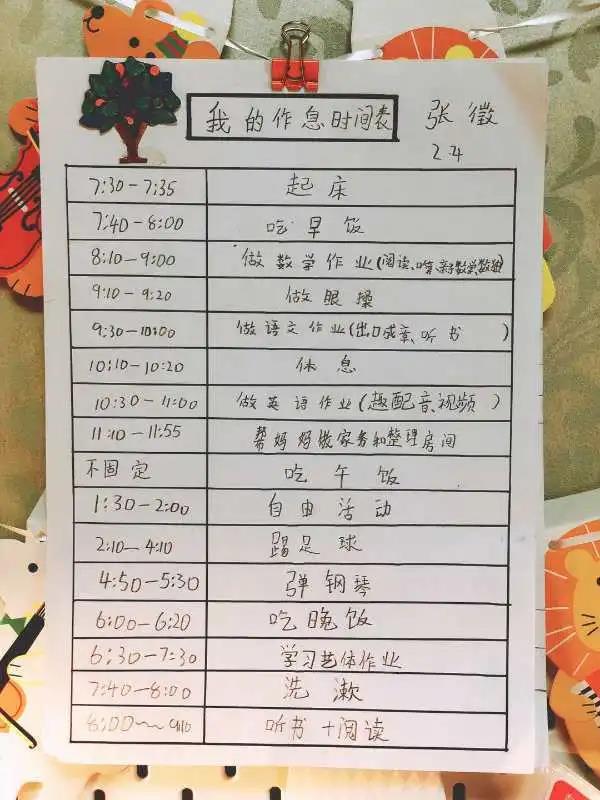 我的作息时间表
张徵
2.4
7:30-7:35 起床
7:40-8:00 吃早饭
8:10-9:00 做数学作业(阅读、口算、
9:10-9:20 做眼操
9:30-10:00 做语文作业(出口成章、听书)
10:10-10:20 休息
10:30-11:00 做英语作业(趣配音、视频)
11:10-11:55 帮妈妈做家务和整理房间
不固定 吃午饭
1:30-2:00 自由活动
2:10-4:10 踢足球
4:50-5:30 弹钢琴
6:00-6:20 吃晚饭
6:30-7:30 学习艺体作业
7:40-8:00 洗漱
8:00~9:10 听书+阅读